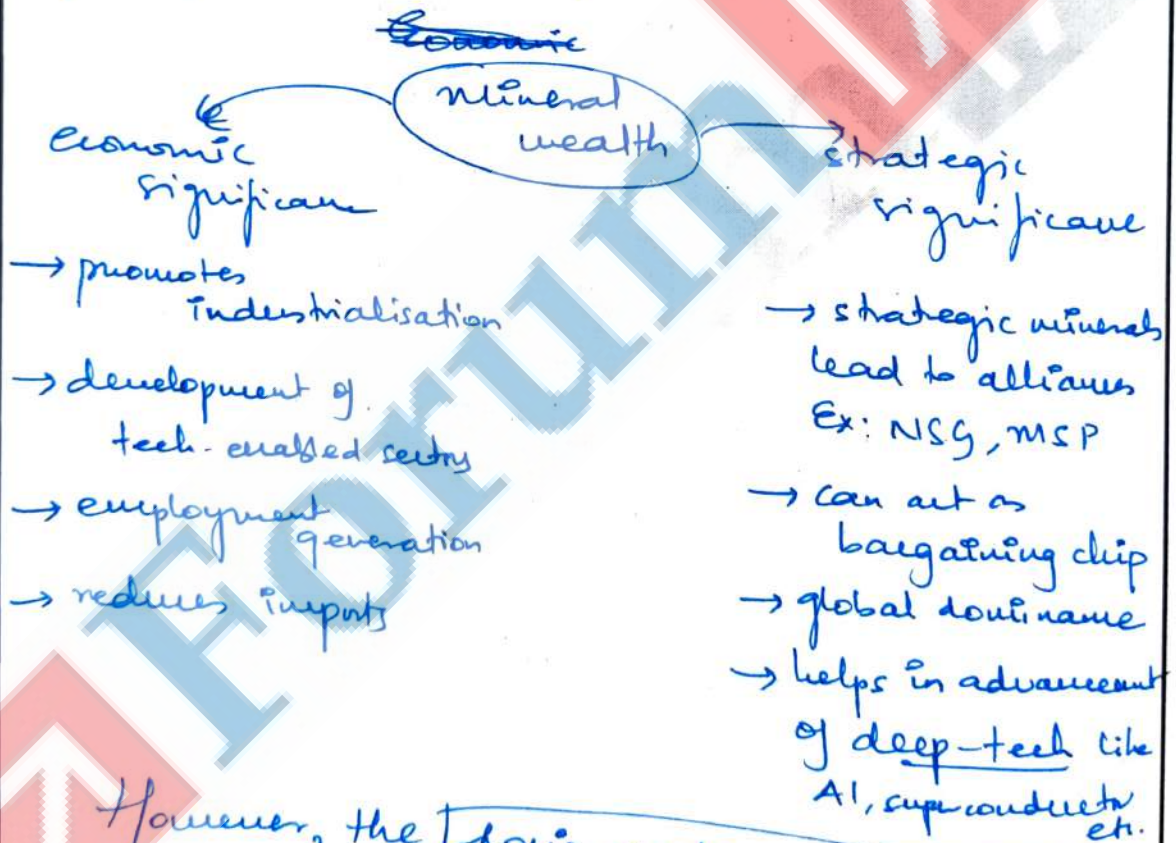 Economic
mineral
wealth
economic
significance
→ promotes
industrialisation
→ development of
tech-enabled sectors
→ employment
generation
→ reduces imports
strategic
significance
→ strategic minerals
lead to alliances
Ex: NSG, MSP
→ can act as
bargaining chip
→ global dominance
→ helps in advancement
of deep-tech like
AI, superconductor
etc.
However, the
Forum